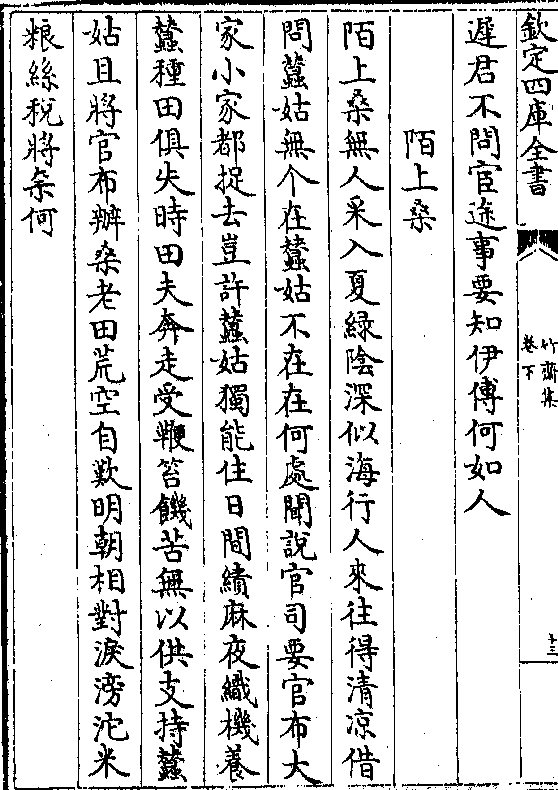 欽定四庫全書
竹齋集
卷下
十三
遲君不問宦途事要知伊傅何如人
陌上桑
陌上桑無人采入夏綠陰深似海行人來往得清凉借
問蠶姑無个在蠶姑不在在何處聞說官司要官布大
家小家都捉去豈許蠶姑獨能住日間績麻夜織機養
蠶種田俱失時田夫奔走受鞭笞饑苦無以供支持蠶
姑且將官布辦桑老田荒空自歎明朝相對淚滂沱米
粮絲税將柰何